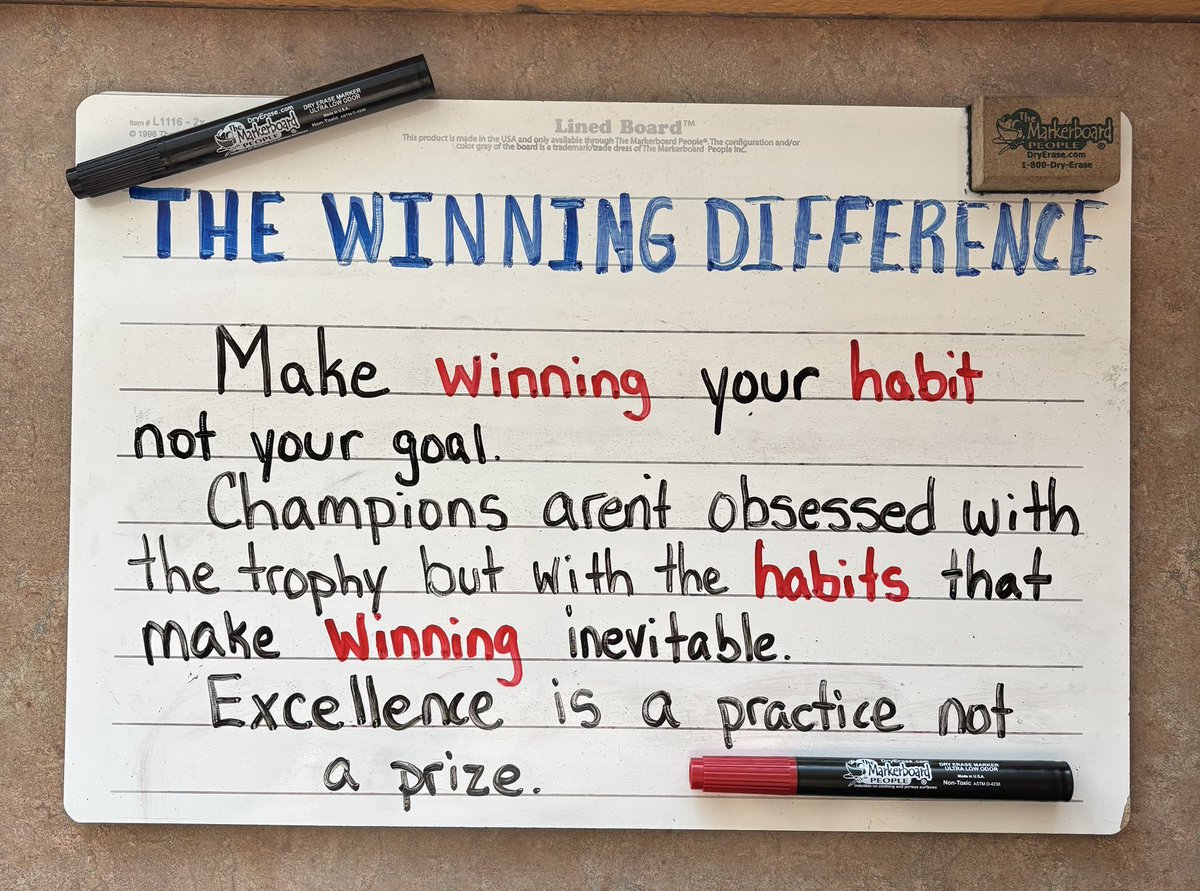 Item # L1116 - 2x
© 1996 The
DryErase.com
The Markerboard
PEOPLE
DRY ERASE MARKER
ULTRA LOW ODOR
Made in U.S.A.
Non-Toxic ASTM D-4236
Lined Board™
This product is made in the USA and only available through The Markerboard People®. The configuration and/or
color gray of the board is a trademark/trade dress of The Markerboard People Inc.
The
Markerboard
PEOPLE®
DryErase.com
1-800-Dry-Erase
THE WINNING DIFFERENCE
Make winning your habit
not your goal.
Champions aren't obsessed with
the trophy but with the habits that
make winning inevitable.
Excellence is a practice not
a prize.
DryErase.com
The Markerboard
PEOPLE
Indelible on clothing and porous surfaces
DRY ERASE MARKER
ULTRA LOW ODOR
Made in U.S.A
Non-Toxic ASTM D-4236